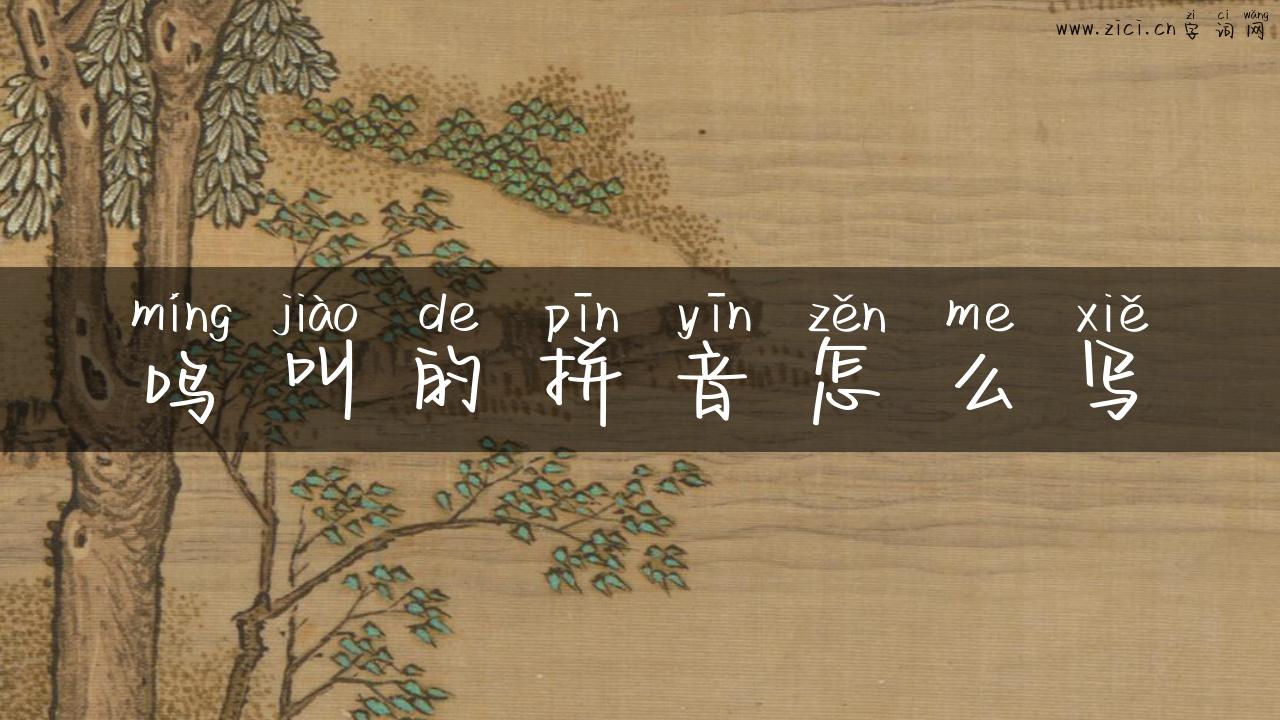 zì cí wǎng
www.zici.cn 字词网
míng jiào de pīn yīn zěn me xiě
鸣叫的拼音怎么写